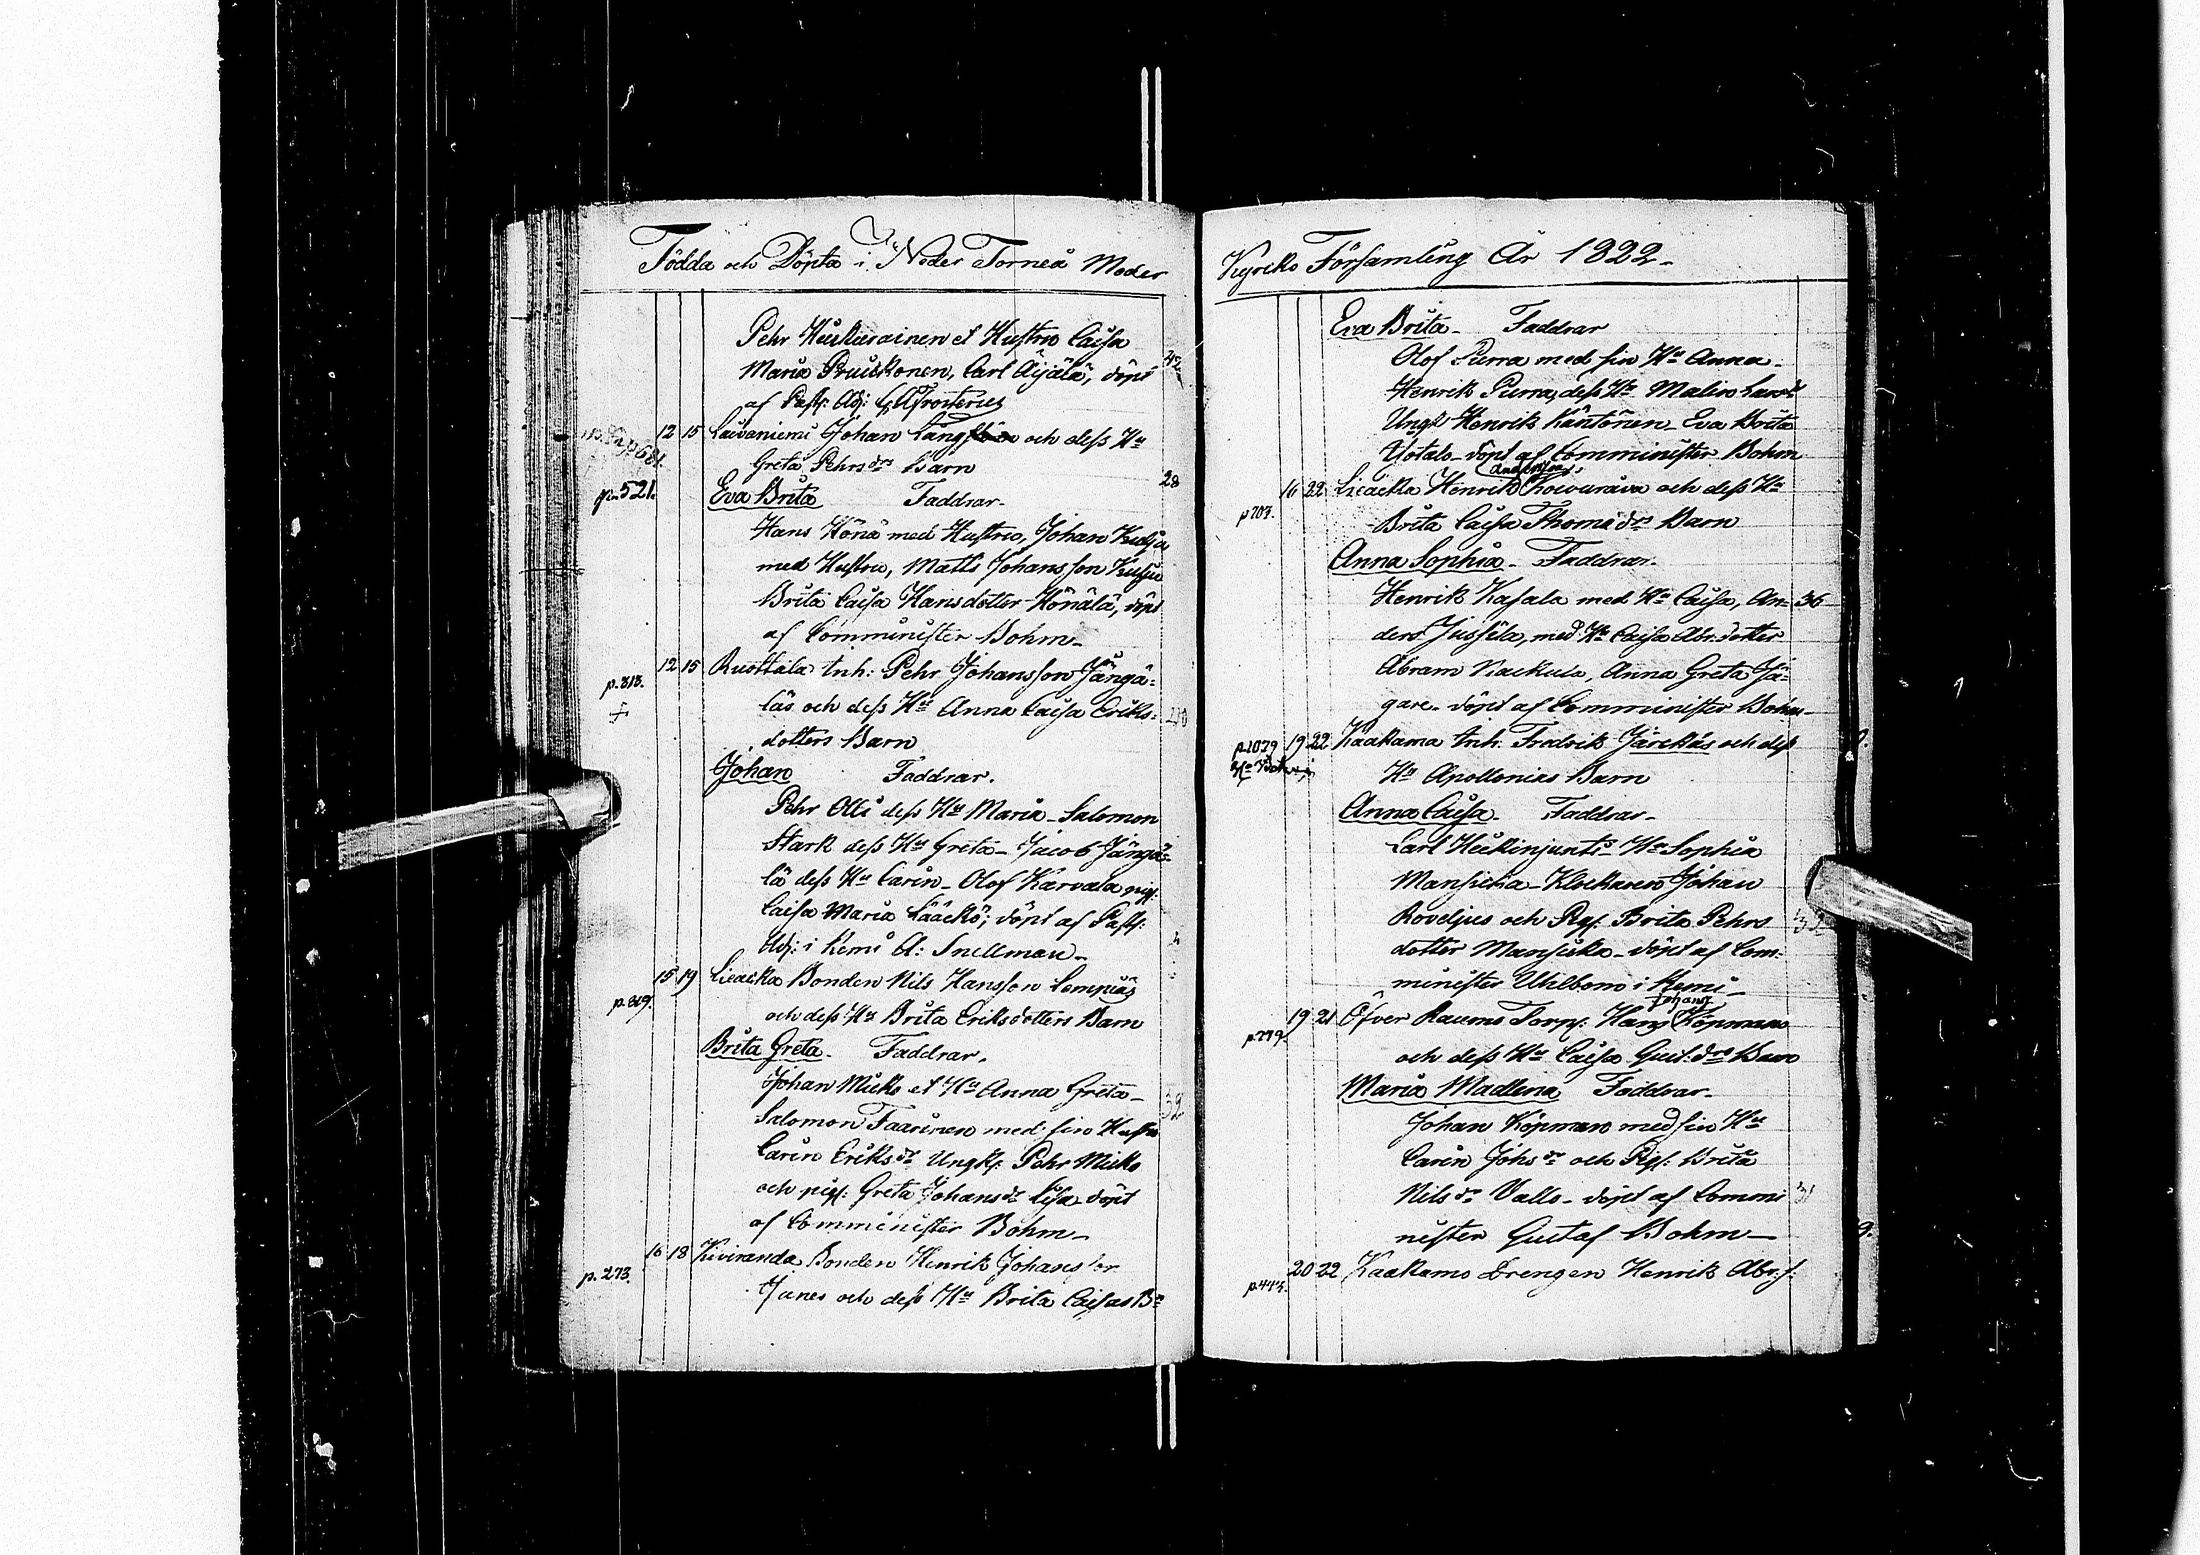 Födda och Döpta i Neder Torneå Moder
Pehr Huukurainen et Hustru Caisa
Maria Pruickonen, Carl Äijälä, döpt
af Past: Adj: Frosterus
12 15 Laivaniemi Johan Lång och dess Hu
Greta Pehrsdrs Barn
p. 521. Eva Brita Faddrar. 28
Hans Könä med Hustru, Johan
med Hustru, Matts Johansson
Brita Caisa Hansdotter Könälä, döpt
af Comminister Bohm
p. 313. 12 15 Ruottala Inh: Pehr Johansson Jängä-
läs och dess Hu Anna Caisa Eriks-
dotters Barn
Johan Faddrar.
Pehr Olli dess Hu Maria - Salomon
Stark dess Hu Greta - Jacob Jängä-
lä dess Hu Carin - Olof Karvala pig:
Caisa Maria Lääckö; döpt af Past:
Adj: i Kemi A: Snellman -
p. 819. 15 19 Liedakka Bonden Nils Hansson Lempiäs
och dess Hu Brita Eriksdotters Barn
Brita Greta. Faddrar.
Johan Micko et Hu Anna Greta - 32
Salomon Taarinen med sin Hustru
Carin Eriksdr Ungk: Pehr Micko
och pig: Greta Johansdr Lisa döpt
af Comminister Bohm -
p. 273. 16 18 Kiviranda Bonden Henrik Johansson
Junes och dess Hu Brita Caisas Bn
Kyrko Församling År 1822 -
Eva Brita - Faddrar
Olof Purra med sin Hu Anna
Henrik Purra, dess Hu Malin Larsdr
Ungk Henrik Käntönen Eva Brita
Yotala - döpt af Comminister Bohm
Andersson
p 703. 16 22 Liedakka Henrik Koivurova och dess Hu
Brita Caisa Thomædrs Barn
Anna Sophia - Faddrar.
Henrik Kasala med Hu Caisa, An- 36
ders Jussila, med Hu Caisa Abr.dotter
Abram Kackula, Anna Greta Jä-
gare - döpt af Comminister Bohm -
p. 1079 19 22 Kaakama Inh: Fredrik Järckäs och dess
Hu Apollonias Barn
Anna Caisa - Faddrar -
Carl Heikinjunti - Hu Sophia
Mansicka - Klockaren Johan
Roveljus och Pig: Brita Pehrs 32
dotter Mansicka - döpt af Com-
minister Uhlbom i Kemi -
Johans
p. 779. 19 21 Öfver Raumo Torp: Hans Köpmans
och dess Hu Caisa Gust.drs Barn
Maria Madlena Faddrar -
Johan Köpman med sin Hu
Carin Johsdr och Pig: Brita
Nilsdr Vallo - döpt af Commi 31
nister Gustaf Bohm -
p. 443. 20 22 Kaakamo Drengen Henrik Abr:s: